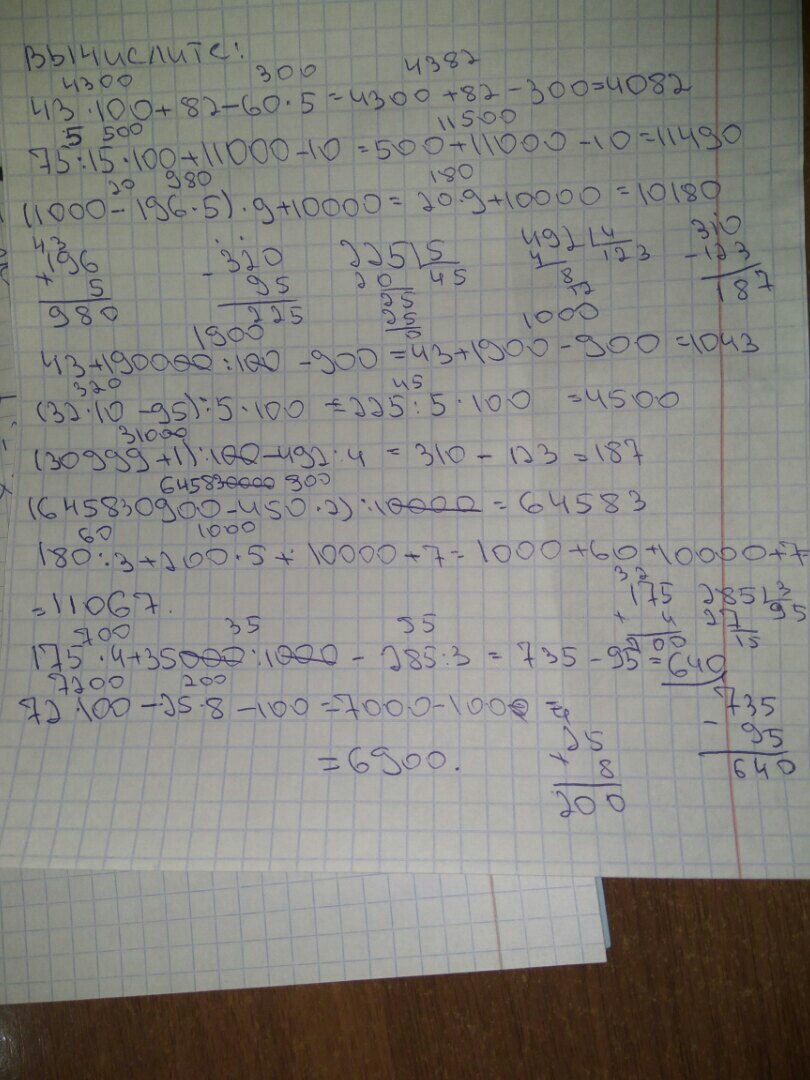 Вычислите:
4300 300 4382
43·100+82-60·5=4300+82-300=4082
5 500 11500
75:15·100+11000-10=500+11000-10=11490
20 980 180
(1000-196·5)·9+10000=20·9+10000=10180
43
196 320 225 5 492 4 310
× 5 - 95 20 45 4 123 -123
980 225 25 8 187
25 12
0
1900 1000
43+190000:100-900=43+1900-900=1043
320 45
(32·10-95):5·100=225:5·100=4500
31000
(30999+1):100-492:4=310-123=187
645830000 900
(645830900-450·2):10000=64583
60 1000
180:3+200·5+10000+7=1000+60+10000+7
=11067.
32
175 285 3
× 4 27 95
700 15
700 35 95
175·4+35000:1000-285:3=735-95=640
7200 200
72·100-25·8-100=7000-100=
=6900.
4
25
× 8
200
735
- 95
640